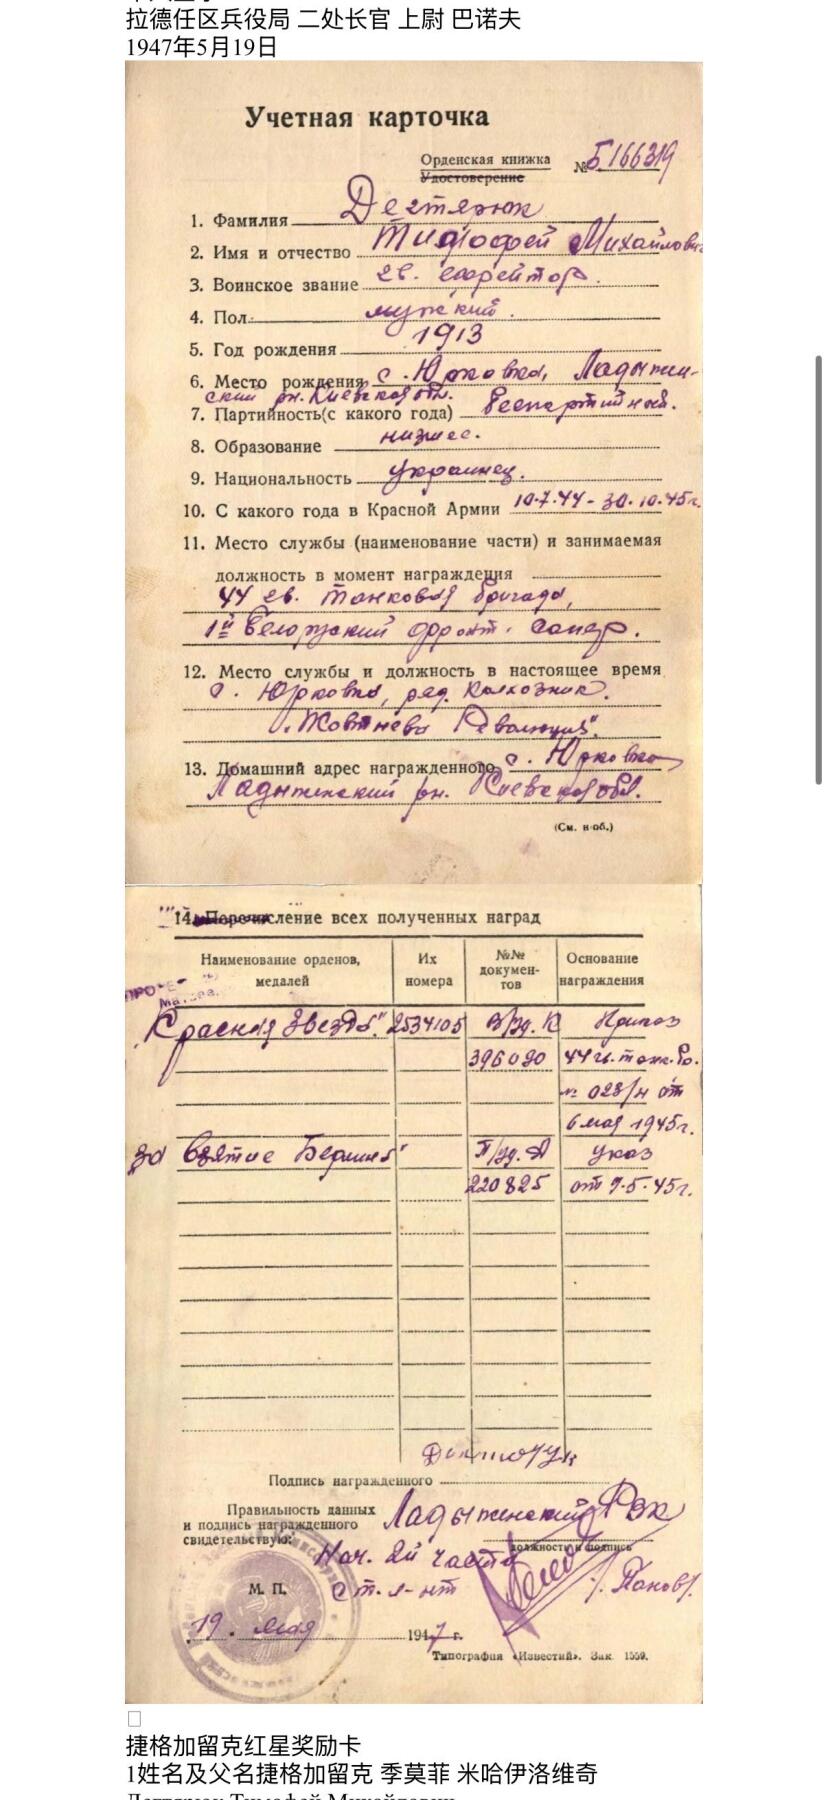 拉德任区兵役局 二处长官 上尉 巴诺夫
1947年5月19日
Учетная карточка
Орденская книжка
Удостоверение
№ Б166319
1. Фамилия Дегтярюк
2. Имя и отчество Тимофей Михайлович
3. Воинское звание гв. ефрейтор.
4. Пол мужский.
5. Год рождения 1913
6. Место рождения с. Юрковка, Ладыжин-
ский рн. Киевской обл.
7. Партийность(с какого года) беспартийный.
8. Образование низшее.
9. Национальность украинец.
10. С какого года в Красной Армии 10.7.44 - 30.10.45г.
11. Место службы (наименование части) и занимаемая
должность в момент награждения
44 гв. танковая бригада,
1й Белорусский фронт. Сапер.
12. Место службы и должность в настоящее время
с. Юрковка, ряд. колхозник.
13. Домашний адрес награжденного с. Юрковка
Ладыженский рн. Киевской обл.
(См. н об.)
14. Перечисление всех полученных наград
Наименование орденов, медалей
Их номера
№№ документов
Основание награждения
"Красная Звезда" 2534105 В/уд. К Приказ
396020 44 гв. танк. бр.
№ 023/н от
6 мая 1945г.
За взятие Берлина" П/уд. А Указ
220825 от 9.5.45г.
Подпись награжденного
Правильность данных
и подпись награжденного
свидетельствую:
Ладыженский РВК
должность и подпись
Нач. 2й части
ст. л-нт
/Панов/.
М. П.
19. мая 1947 г.
Типография «Известий». Зак. 1559.
捷格加留克红星奖励卡
1姓名及父名捷格加留克 季莫菲 米哈伊洛维奇
Дегтярюк Тимофей Михайлович